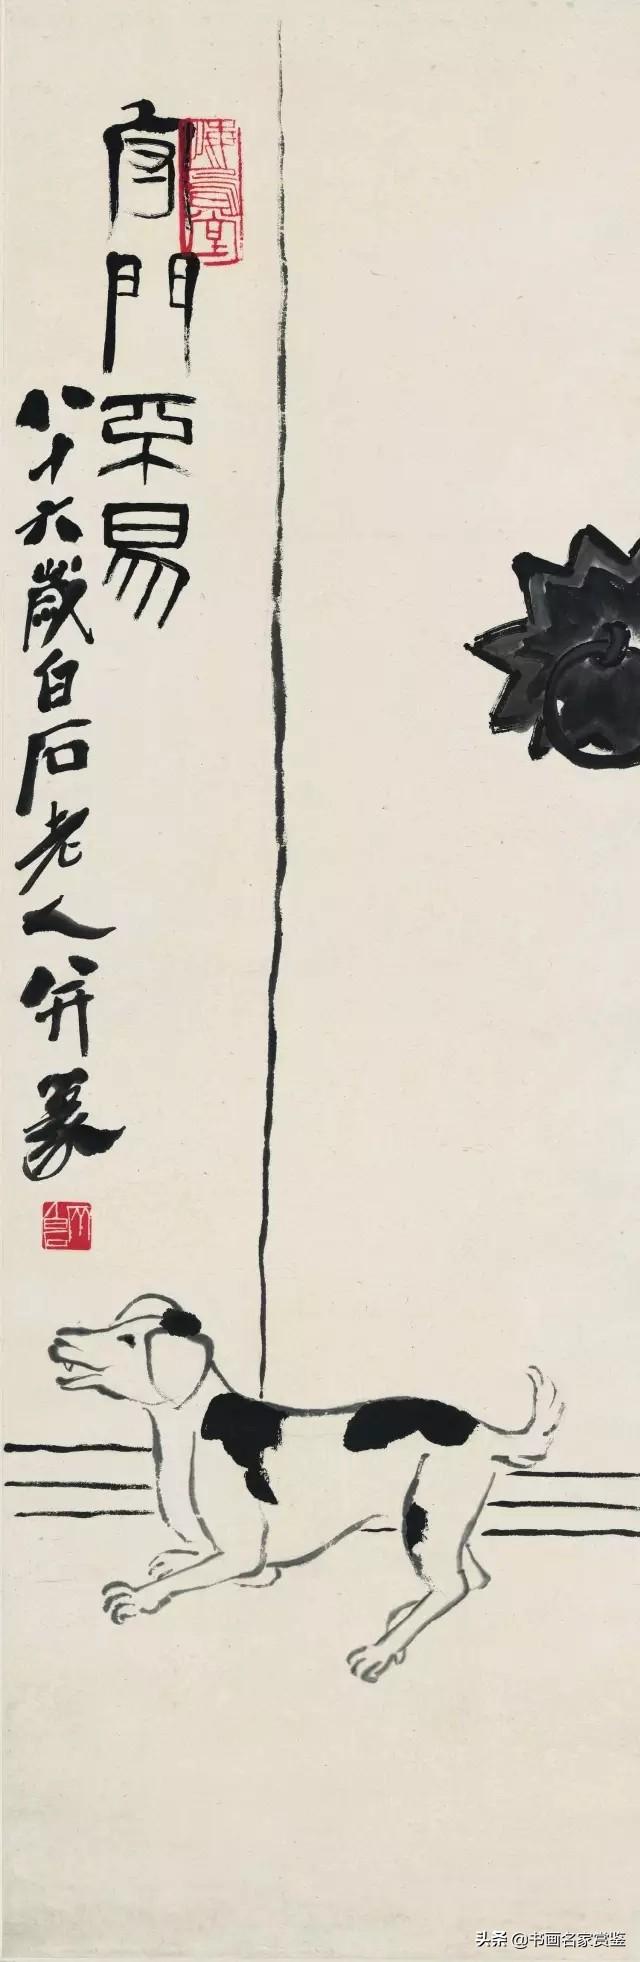 悔烏堂
守門不易
八十六歲白石老人并篆
头条 @书画名家赏鉴